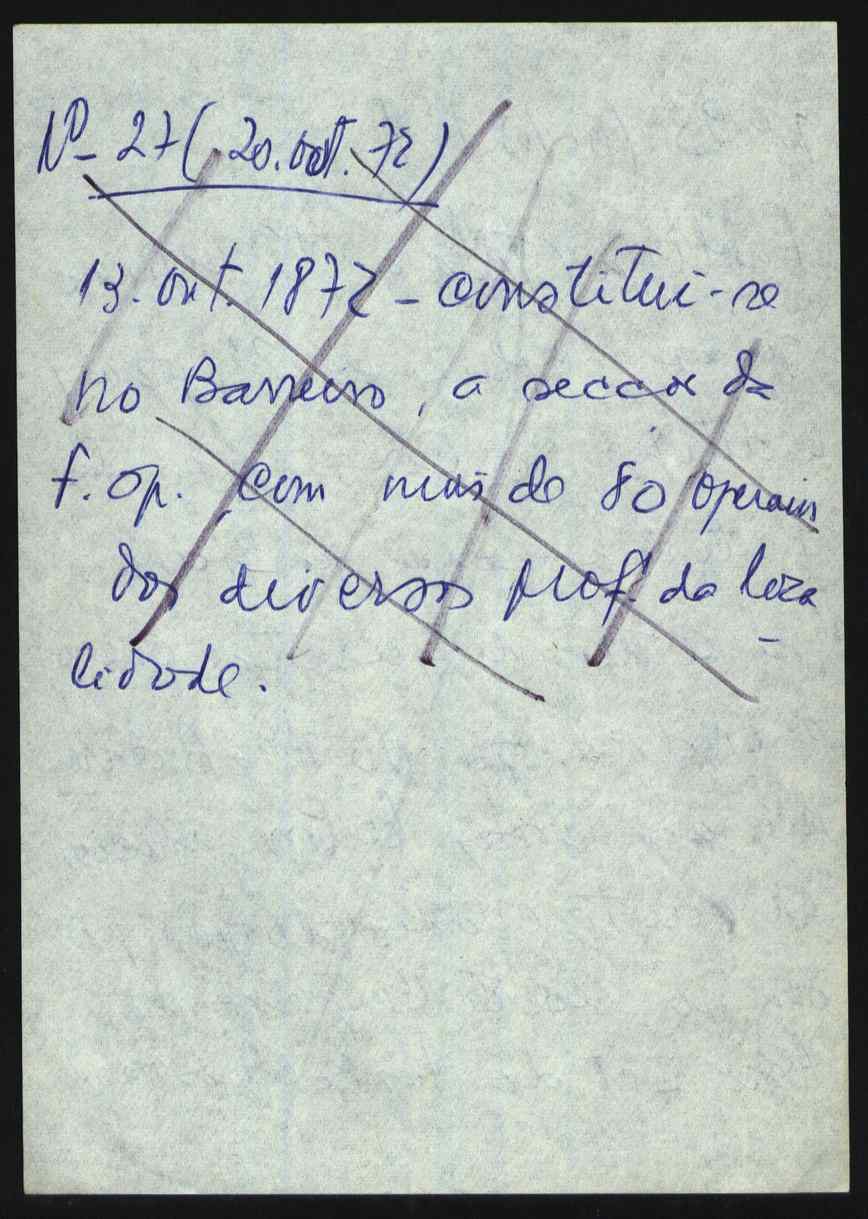 Nº 27 (20. out. 72)
13. out. 1872 - constitui-se
no Barreiro, a secção da
f. op. com mais de 80 operarios
das diversas prof. da loca
lidade.